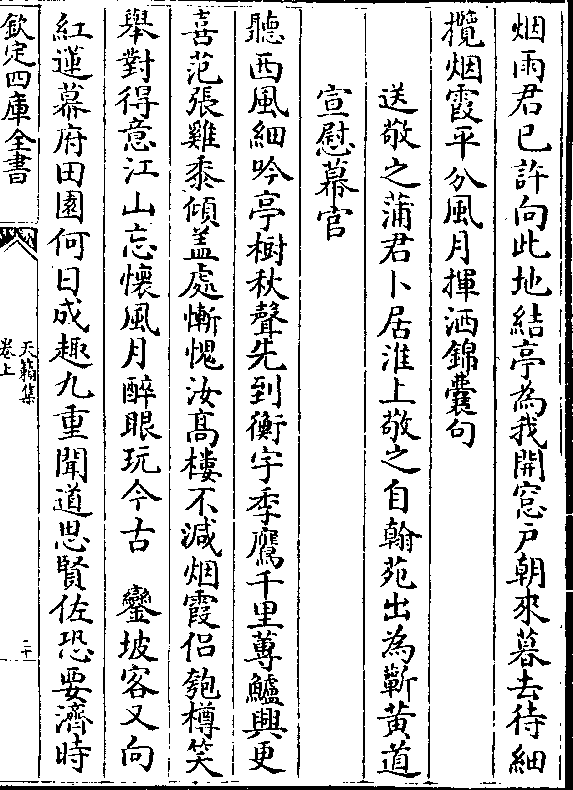 烟雨君已許向此地結亭為我開窓戶朝來暮去待細
攬烟霞平分風月揮洒錦囊句
送敬之蒲君卜居淮上敬之自翰苑出為蘄黃道
宣慰幕官
聽西風細吟亭樹秋聲先到衡宇季鷹千里蓴鱸興更
喜范張雞黍傾盖處慚愧汝髙樓不減烟霞侣匏樽笑
舉對得意江山忘懷風月醉眼玩今古　鑾坡客又向
紅蓮幕府田園何日成趣九重聞道思賢佐恐要濟時
欽定四庫全書
天籟集
卷上
二十